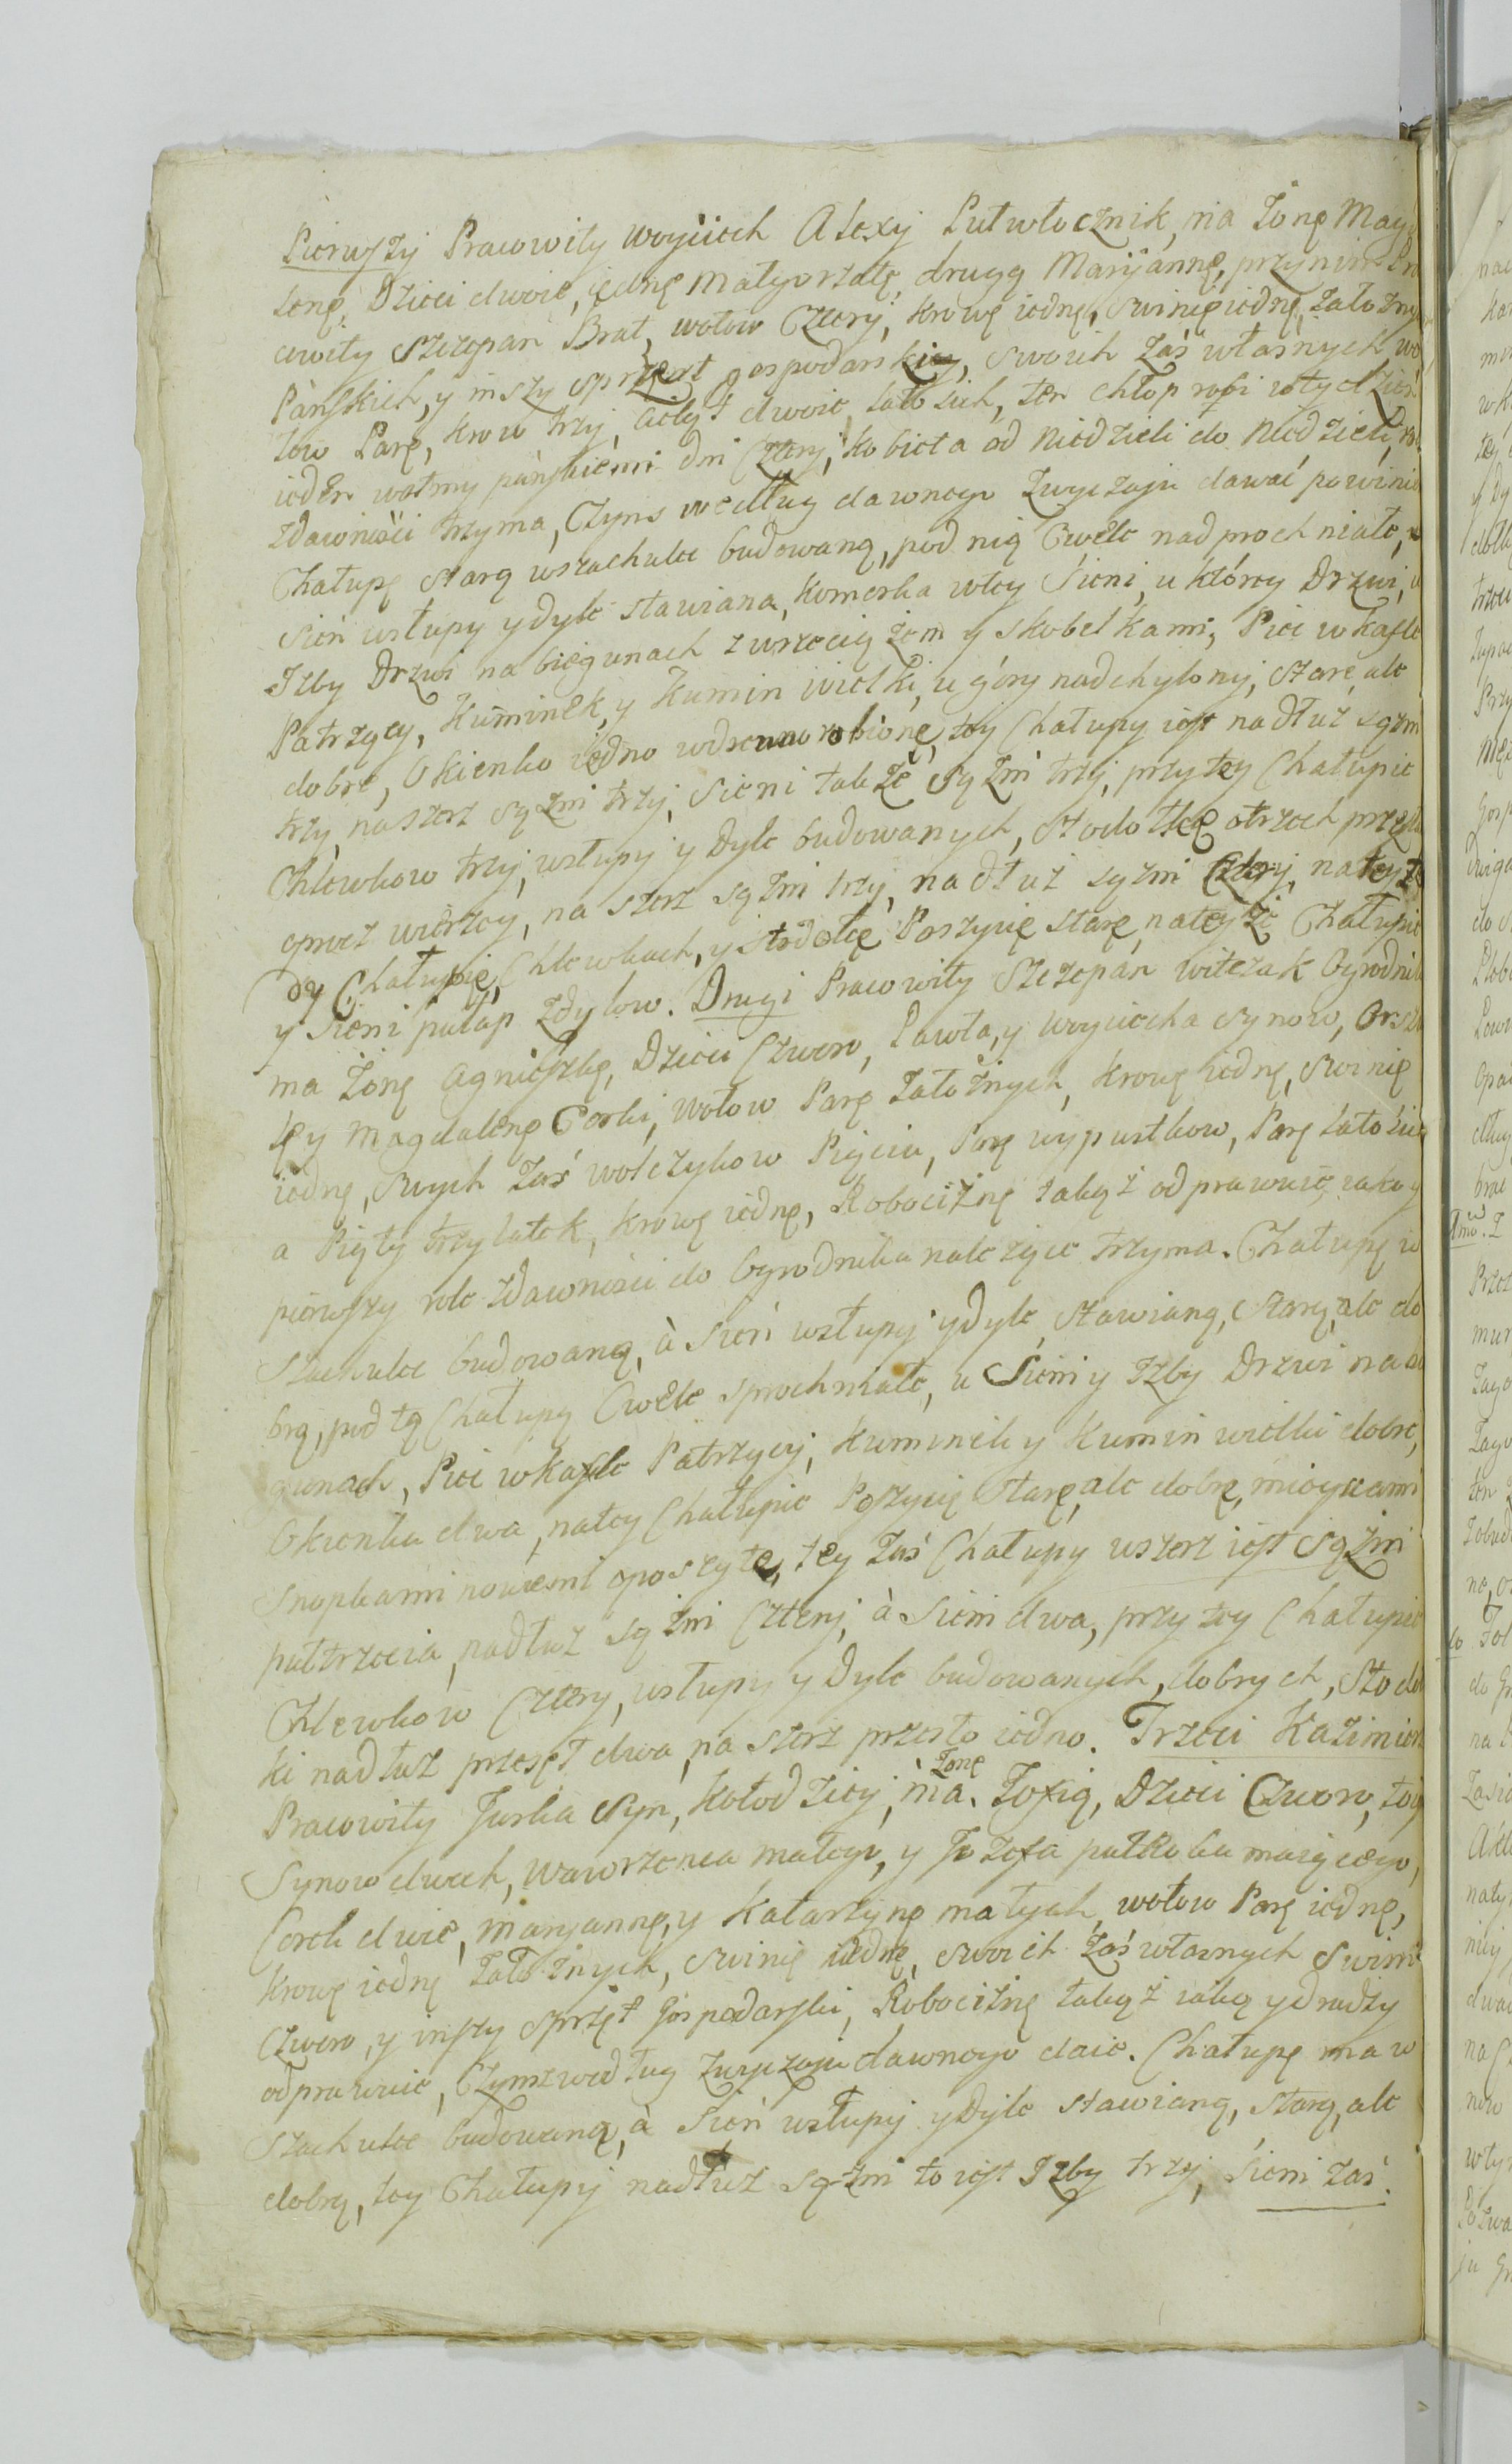 Pierwszy Pracowity Woyciech Alexy Putwłocznik, ma Zonę Magd
lenę, Dzieci dwoie, iednę Małgorzatę, drugą Maryannę, przynim Pra
cowity Szczepan Brat, wołow Cztery, krowę iednę, swinię iednę, załoźny
Pańskich, y inszy sprzęnt gospodarskiey, swoich Zaś własnych wo
łow Parę, krow trzy, cieląt dwoie latosich, ten chłop robi wtydzień
ieden wołmy pańskiemi dni Cztery, kobieta od Niedzieli do Niedzieli, ro
zdawności trzyma, Czyns według dawnego Zwyczaju dawać powinie
Chałupę starą wszachulec budowaną, pod nią Cwele nadprochniałe, a
sień wsłupy y dyle stawiana, komorka wtey Sieni, u ktorey Drzwi, u
Izby Drzwi na biegunach z wrzeciążem y skobelkami, Piec w kafle
Patrzący, Kuminek, y Kumin wielki, u gory nadchylony, stare, ale
dobre, Okienko iedno wdrewno robione, tey Chałupy iest nadłuż sązni
trzy, naszerz sążni trzy, Sieni także sążni trzy, przytey Chałupie
Chlewkow trzy, wsłupy y Dyle budowanych, Stodołkę otrzech przęsła
oprocz wierzey, na szerz sążni trzy, nadłuż sązni Cztery, nateyże
dy Chałupie, Chlewkach, y Stodołce Poszycię starę, nateyże Chałupie
y Sieni pułap zdylow. Drugi Pracowity Szczepan Witczak Ogrodnik
ma Żonę Agnieszkę, Dzieci Czworo, Pawła, y Woyciecha synow, Orszu
lę y Magdalenę Corki, wołow Parę Załoźnych, krowę iednę, swinię
iednę, swych Zaś wolczykow Pięciu, Parę wypustkow, Parę latosich
a Piąty trzylatek, krowę iednę, Robociżnę takąż odprawuie, iako y
pierwszy role zdawności do Ogrodnika należące trzyma. Chałupę w
Szachulec budowaną, à Sień wsłupy y dyle, stawianą, Starą, ale do
brą, pod tą Chałupą Cwele sprochniałe, u Sieni y Izby Drzwi na bi
gunach, Piec w kafle Patrzący, kuminek y kumin wielki dobre,
Okienka dwa, natey Chałupie Poszycię starę, ale dobrę, mieyscami
Snopkami nowemi oposzytę, tey Zaś Chałupy wszerz iest Sążni
pułtrzecia, nadłuż sążni Cztery, à Sieni dwa, przy tey Chałupie
Chlewkow Cztery, wsłupy y Dyle budowanych, dobrych, Stodoł
ki nadłuż przęseł dwa, na szerz przesło iedno. Trzeci Kazimierz
Pracowity Jurka Syn, Kołodziey, ma Zonę Zofią, Dzieci Czworo, toy
Synow dwoch, Wawrzenca małego, y Jozefa pułroka maiącego,
Corek dwie, Maryannę, y Katarzynę małych, wołow Parę iednę,
krowę iednę Załoźnych, swinię iednę, swoich Zaś własnych Swini
Czworo, y inszy sprzęt gospodarski, Robociżnę takąż iaką y drudzy
odprawuie, Czynsz według Zwyczaju dawnego daie. Chałupę ma w
Szachulec budowaną, à Sień wsłupy y dyle stawianą, starą, ale
dobrą, tey Chałupy nadłuż sążni to iest Izby trzy, Sieni Zaś.